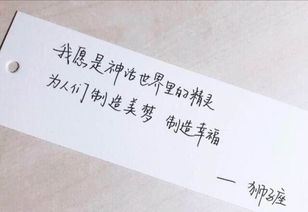 我愿是神话世界里的精灵
为人们制造美梦 制造幸福
— 狮子座